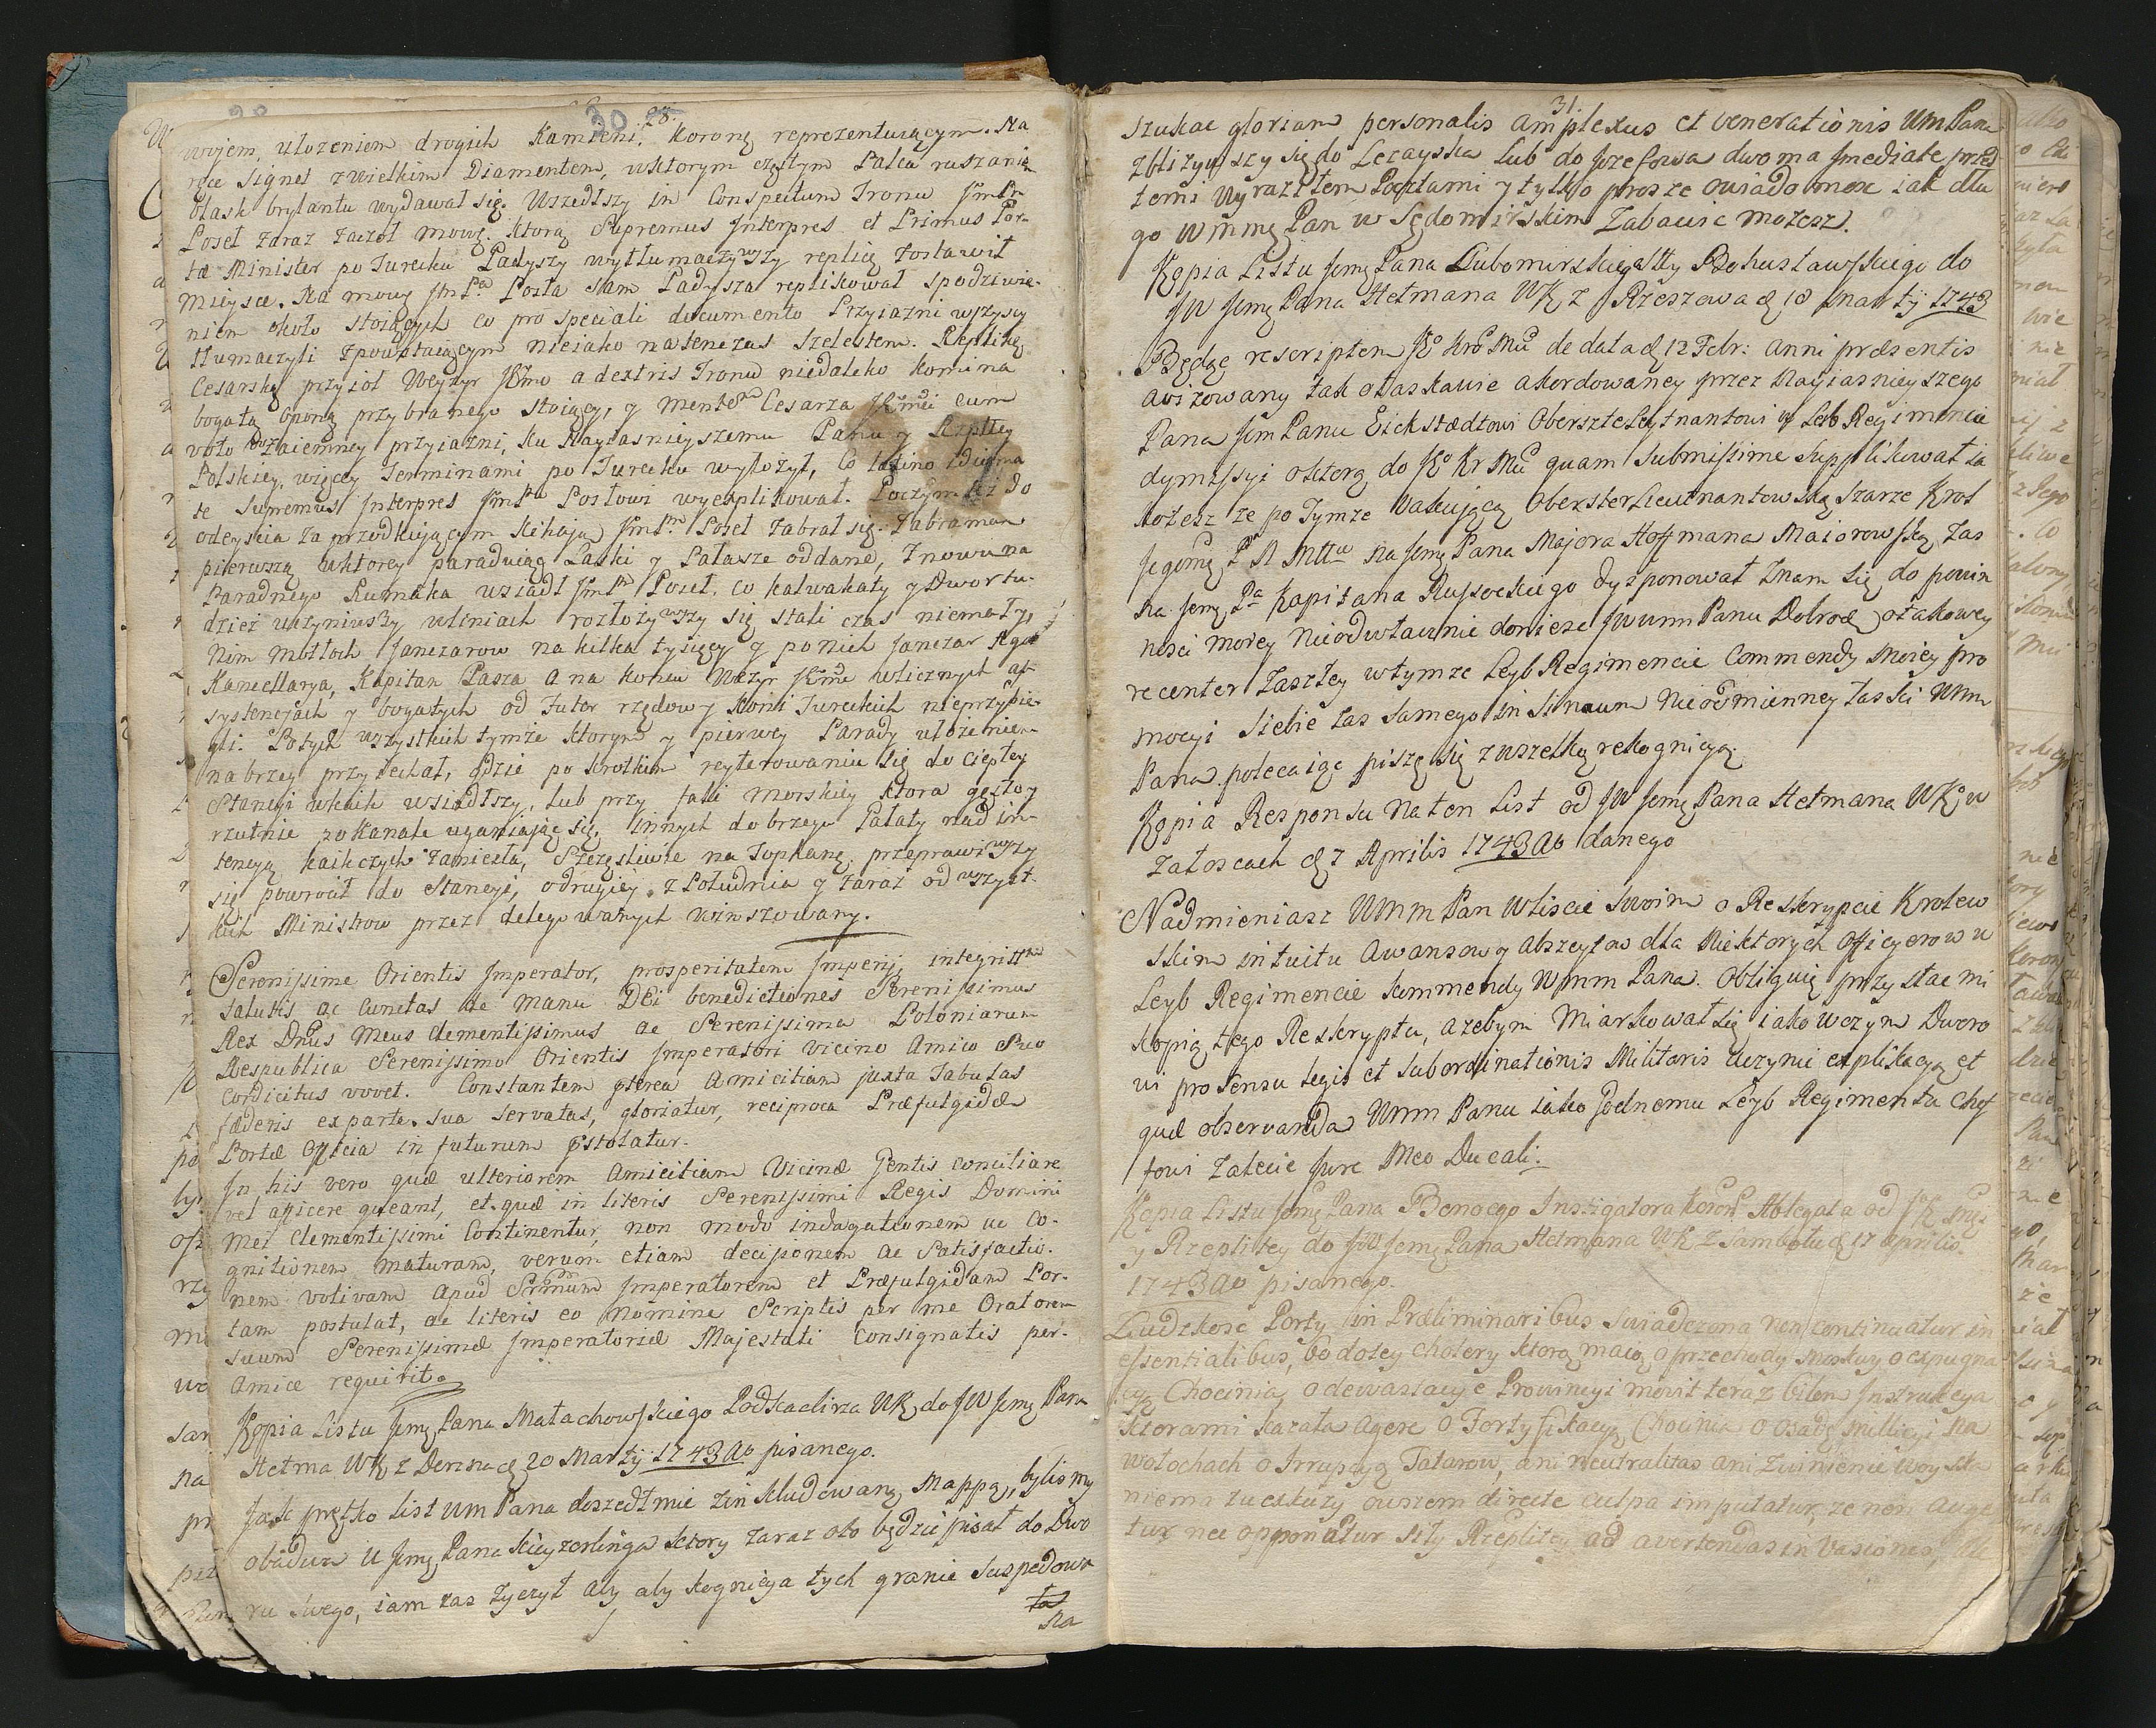 30 28.
wojem, ułozeniem drogich Kamieni, Koronę reprezentuiącym. Na
ręce Signet z wielkim Diamentem, w ktorym częstym Palca ruszaniem
blask brylantu wydawał się. Wszedłszy in Conspectum Tronu JmPn
Poseł zaraz zaczoł mowę. ktorą Supremus Interpres et Primus Por-
tæ Minister po Turecku Padyszy wytłumaczywszy replicę zostawił
Mieysce. Na mowę JmPa Posła sam Padysza replikował z podziwie-
niem około stoiących co pro speciali documento Przyiazni wszyscy
tłumaczyli z powstaiącym nieiako natenczas szelestem. Replikę
Cesarską przyioł Wezyr Jmo a dextris Tronu niedaleko komina
bogatą oponą przybranego stoiący, y mentem Cesarza Jmci cum
voto wzaiemney przyiazni, ku Nayiasnieyszemu Panu y Rzptey
Polskiey, więcey Terminami po Turecku wyłożył, Co latino idioma
te Supremus Interpres JmPu Posłowi wyexplikował. Poczym też do
odeyscia za przodkuiącym Kihaią JmPn Poseł zabrał się. Za braman
pierwszą w ktorey paraduiąc Laski y Pałasze oddane, znowu na
Paradnego Rumaka wsiadł JmPn Poseł, Co kalwakaty y Dwor tu-
dzież uczyniwszy w liniach rozłożywszy się stali czas niemały,
Nim motłoch Janczarow na kilka tysięcy y po nich Janczar Aga
Kancellarya, Kapitan Pasza a na koncu Wezyr Jmc w licznych as-
systencyach y bogatych od Futer rzędow y Koni Tureckich nieprzybie-
gli. Po tych wszystkich tymże ktorym y pierwey Parady ułożeniem
na brzeg przyiechał, gdzie po krotkim reyterowaniu się do ciepłey
Stancyi w kaik wsiadłszy, lub przy fali Morskiey ktora gęsto y
rzutnie po Kanale uganiaiąc się, innych do brzegu Pałaty nad in-
tencyą kaikczych zaniesła, Szczęśliwie na Tophanę przeprawiwszy
się powrocił do Stancyi, o drugiey z Południa y zaraz od wszyst-
kich Ministrow przez delegowanych winszowany.
Serenissime Orientis Imperator, prosperitatem Imperij, integritatem
salutis ac cunctas de Manu DEi benedictiones Serenissimus
Rex Dnus Meus Clementissimus ac Serenissima Poloniarum
Respublica Serenissimo Orientis Imperatori vicino Amico Suo
cordicitus vovet. Constantem pterea Amicitiam juxta Tabulas
fæderis ex parte sua servatas, gloriatur, reciproca Præfulgidæ
Portæ Officia in futurum pstolatur.
In his vero quæ ulteriorem Amicitiam Vicinæ Gentis conciliare
vel aficere queant, et quæ in literis Serenissimi Regis Domini
Mei Clementissimi Continentur, non modo indagationem ac co-
gnitionem maturam, verum etiam decisionem ac Satisfactio-
nem votivam apud Srmum Imperatorem et Præfulgidam Por-
tam postulat, ac literis eo Nomine Scriptis per me Oratorem
suum Serenissimæ Imperatoriæ Majestati Consignatis per-
amice requirit.
Kopia Listu Jmę Pana Małachowskiego Podkaclirza WK do JW Jmę Pana
Hetma WK z Drezna d 20 Martij 1743 Ao pisanego.
Jak prętko list UmPana doszedł mie z inkludowaną Mappą, bylismy
obadwa u Jmę Pana Kieyzerlinga ktory zaraz oto będzie pisał do Dwo
ru swego, iam zas życzył aby aby kognicya tych granic suspedowa
ta
na
31.
szukac gloriam personalis amplexus et venerationis UmPana
zbliżywszy się do Leżayska lub do Jozefowa dwoma Imediate przed
temi wyraziłem Pocztami y tylko prosze o wiadomosc iak dłu
go Wmmę Pan w Sędomirskim zabawic możesz.
Kopia Listu Jmę Pana Lubomirskiego Stty Bohusławskiego do
JW Jmę Pana Hetmana WK z Rzeszowa d 18 Martij 1743
Będąc rescriptem Jo Kro Mci de data d 12 Febr: anni præsentis
awizowany tak o łaskawie akordowaney przez Nayiasnieyszego
Pana Jm Panu Eickstædtowi Oberszteleytnantowi w Leib Regimencie
dymissyi o ktorą do Jo Kr Mci quam submissime supplikował ia
ko tesz ze po Tymze vakuiącą Oberszterleutnantowską szarze Krol
Jegomę P N Mttu na Jmę Pana Majora Hoffmana Maiorowską zas
na Jmę Pa Kapitana Russockiego dysponował znam się do powin
nosci moiey nieodwłacznie doniesc JW umm Panu Dobrod o takowey
recenter zaszłey w tymze Leyb Regimencie Commendy moiey pro
mocyi siebie zas samego in sinum nieodmienney łaski Wmm
Pana polecaiąc piszę się z wszelką rekognicyą.
Kopia Responsu na ten List od JW Jmę Pana Hetmana WK w
Załoscach d 7 Aprilis 1743 Ao danego
Nadmieniasz UMm Pan w liscie swoim o Reskrypcie Krolew
skim intuitu awansow y abszytow dla niektorych Officyerow w
Leyb Regimencie kommendy Wmm Pana. Obliguię przysłac mi
kopią tego Reskryptu, azebym miarkował się iako w czym Dworo
wi pro sensu legis et subordinationis Militaris uczynic explikacyą et
quæ observanda Umm Panu iako godnemu Leyb Regimentu Chef
fowi zalecic Jure Meo Ducali.
Kopia Listu Jmę Pana Benoego Instigatora Koron Ablegata od JK Mci
y Rzeplitey do JW Jmę Pana Hetmana WK z Stambołu d 17 Aprilis
1743 Ao pisanego.
Ludzkosc Porty in Præliminaribus swiadczona non continuatur in
essentialibus, bo dosey cholery ktorą maią o przechody Moskwy o expugna
cyą Chocimia, o dewastacye Prowincyi mowił teraz
ktorami kazała agere o Fortyfikacyą Chocimia o osadę Millicyi na
Wołochach o Irrupcyą Tatarow, ani neutralitas ani zwinienie Woyska
niema zasługi owszem directe culpa imputatur, ze non auge
tur nec opponitur siły Rzeplitey ad avertendas invasiones,